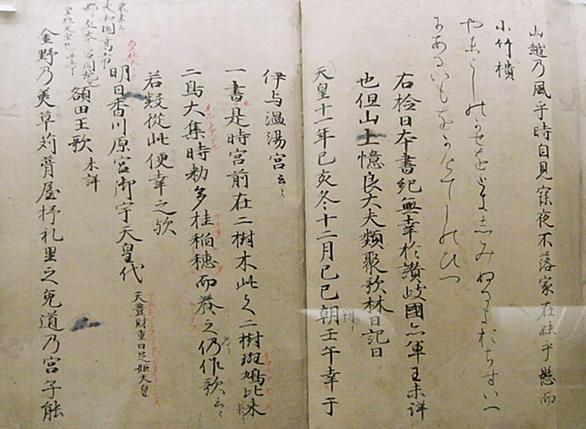 山越乃風乎時自見寐夜不落家在妹乎懸而
小竹櫃
やまこしのかせをときしみぬるよおちすいへ
にあるいもをかけてしのひつ
右検日本書紀無幸於讃岐國亦軍王未詳
也但山上憶良大夫類聚歌林日記曰
天皇十一年己亥冬十二月己巳朔壬午幸于
伊与温湯宮云々
一書是時宮前在二樹木此之二樹斑鳩比米
二鳥大集時勅多挂稲穂而養之仍作歌云々
若疑從此便幸之歟
明日香川原宮御宇天皇代 天豊財重日足姫天皇
額田王歌 未詳
金野乃美草苅葺屋杼礼里之兎道乃宮子能